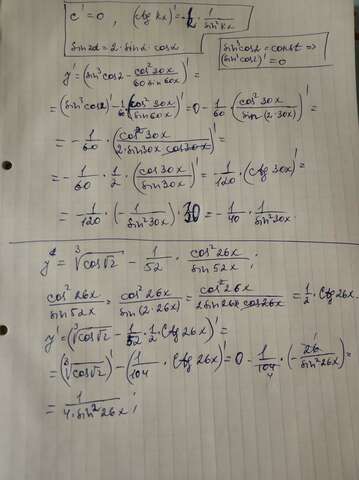 c' = 0 , (ctg kx)' = -k · 1/sin²kx
sin2α = 2 · sinα · cosα
sin³cos2 = const ⇒
(sin³cos2)' = 0
y' = (sin³cos2 - cos²30x/60 sin60x)' =
= (sin³cos2)' - 1/60 (cos²30x/sin60x)' = 0 - 1/60 · (cos²30x/sin(2·30x))' =
= - 1/60 · (cos²30x/2·sin30x cos30x)' =
= - 1/60 · 1/2 · (cos30x/sin30x)' = - 1/120 · (ctg 30x)' =
= - 1/120 · (- 1/sin²30x) · 30 = - 1/40 · 1/sin²30x.
y = ³√cos√2 - 1/52 · cos²26x/sin52x ;
cos²26x/sin52x = cos²26x/sin(2·26x) = cos²26x/2sin26x cos26x = 1/2 · ctg 26x
y' = (³√cos√2 - 1/52 · 1/2 ctg 26x)' =
= (³√cos√2)' - (1/104 · ctg 26x)' = 0 - 1/104 · (- 26/sin²26x) =
4
= 1/4·sin²26x ;